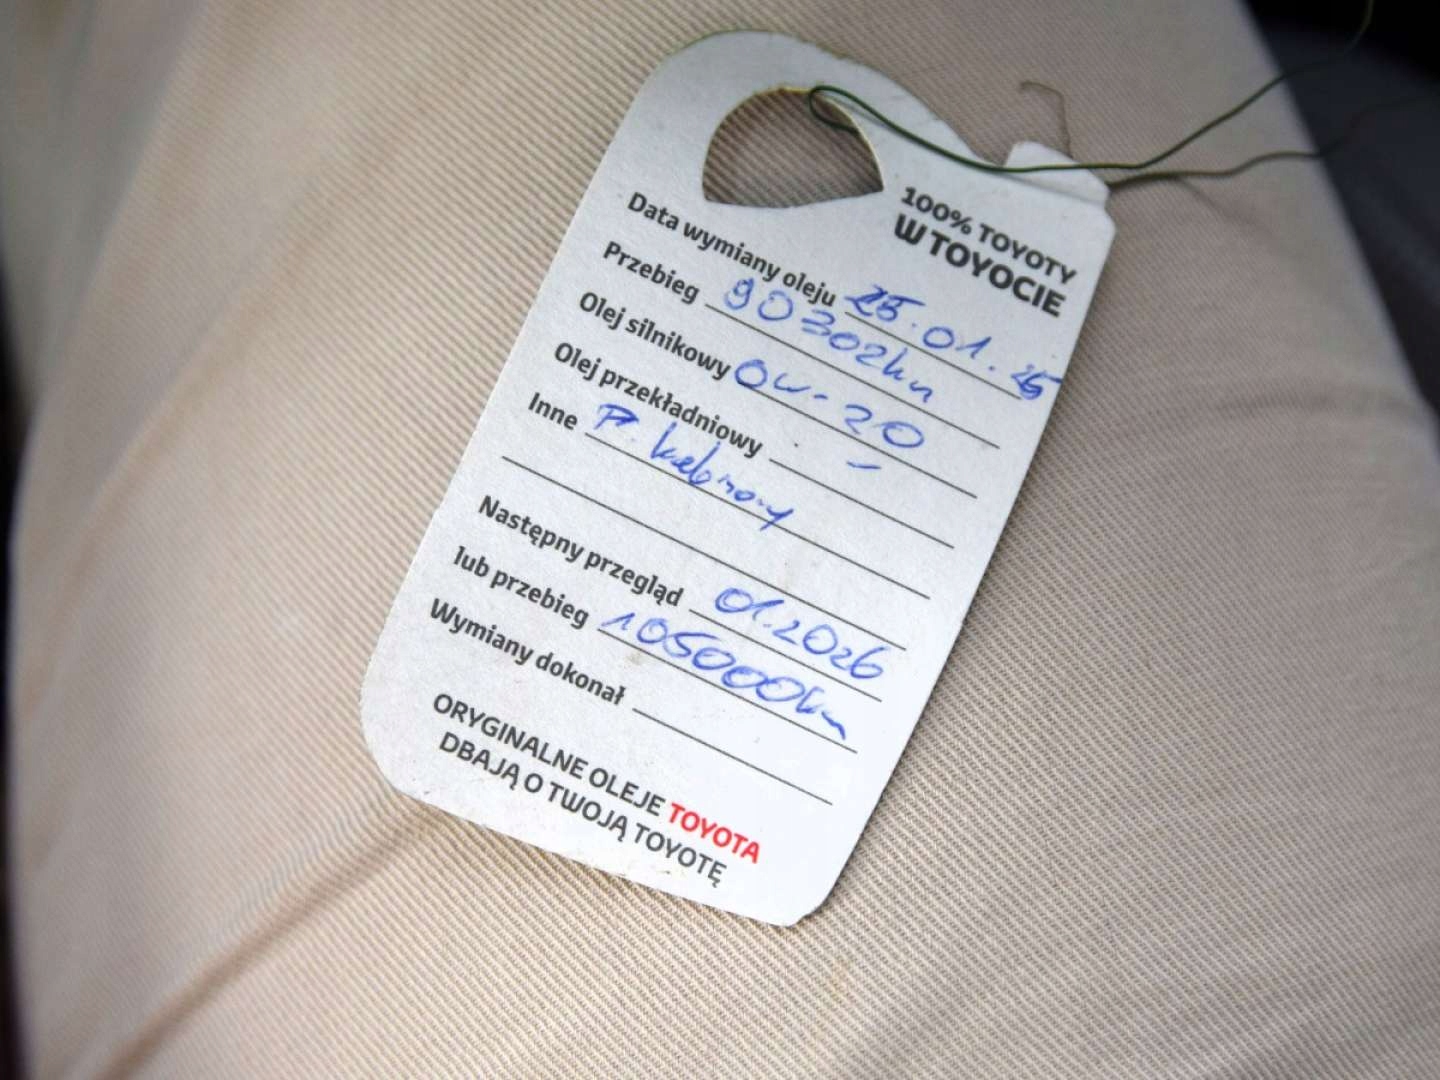 100% TOYOTY
W TOYOCIE
Data wymiany oleju 25.01.25
Przebieg 90302km
Olej silnikowy 0w-20
Olej przekładniowy -
Inne F. kabinowy
Następny przegląd 01.2026
lub przebieg 105000km
Wymiany dokonał
ORYGINALNE OLEJE TOYOTA
DBAJĄ O TWOJĄ TOYOTĘ